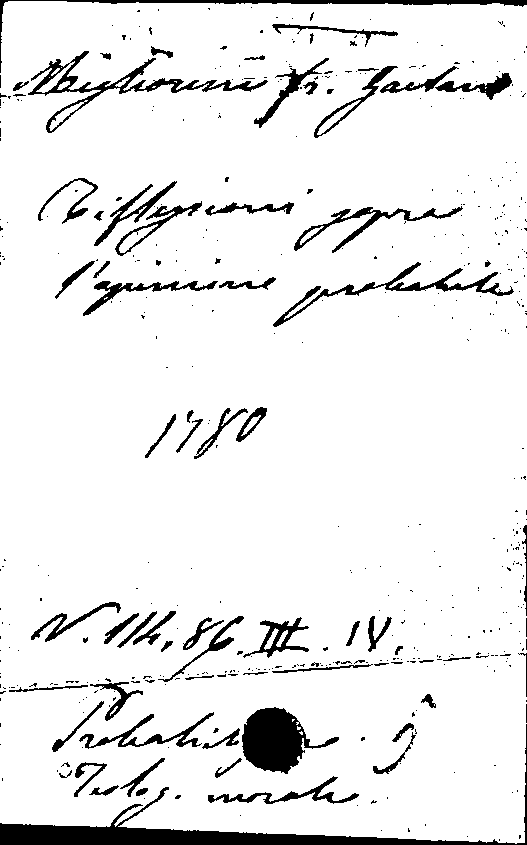 Migliorini fr. Gaetano
Riflessioni sopra
l'opinione probabile
1780
V. 114, 86. III. IV.
Teolog. morale.